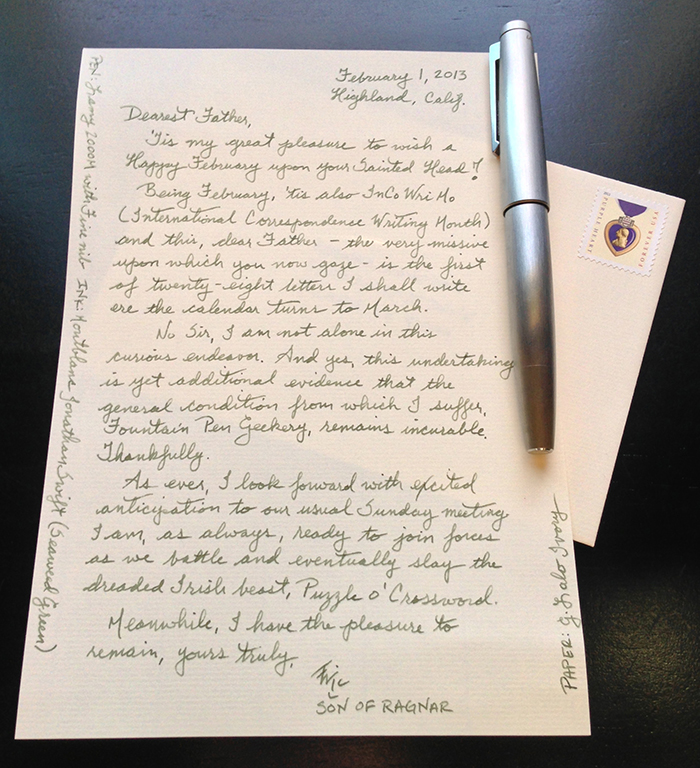 February 1, 2013
Highland, Calif.
Dearest Father,
'Tis my great pleasure to wish a
Happy February upon your Sainted Head!
Being February, 'tis also InCoWriMo
(International Correspondence Writing Month)
and this, dear Father – the very missive
upon which you now gaze – is the first
of twenty-eight letters I shall write
ere the calendar turns to March.
No Sir, I am not alone in this
curious endeavor. And yes, this undertaking
is yet additional evidence that the
general condition from which I suffer,
Fountain Pen Geekery, remains incurable.
Thankfully.
As ever, I look forward with excited
anticipation to our usual Sunday meeting
I am, as always, ready to join forces
as we battle and eventually slay the
dreaded Irish beast, Puzzle o' Crossword.
Meanwhile, I have the pleasure to
remain, yours truly,
SON OF RAGNAR
PEN: Lamy 2000M with Fine nib INK: Montblanc Jonathan Swift (Seaweed Green)
PAPER: G. Lalo Ivory
PURPLE HEART
FOREVER USA